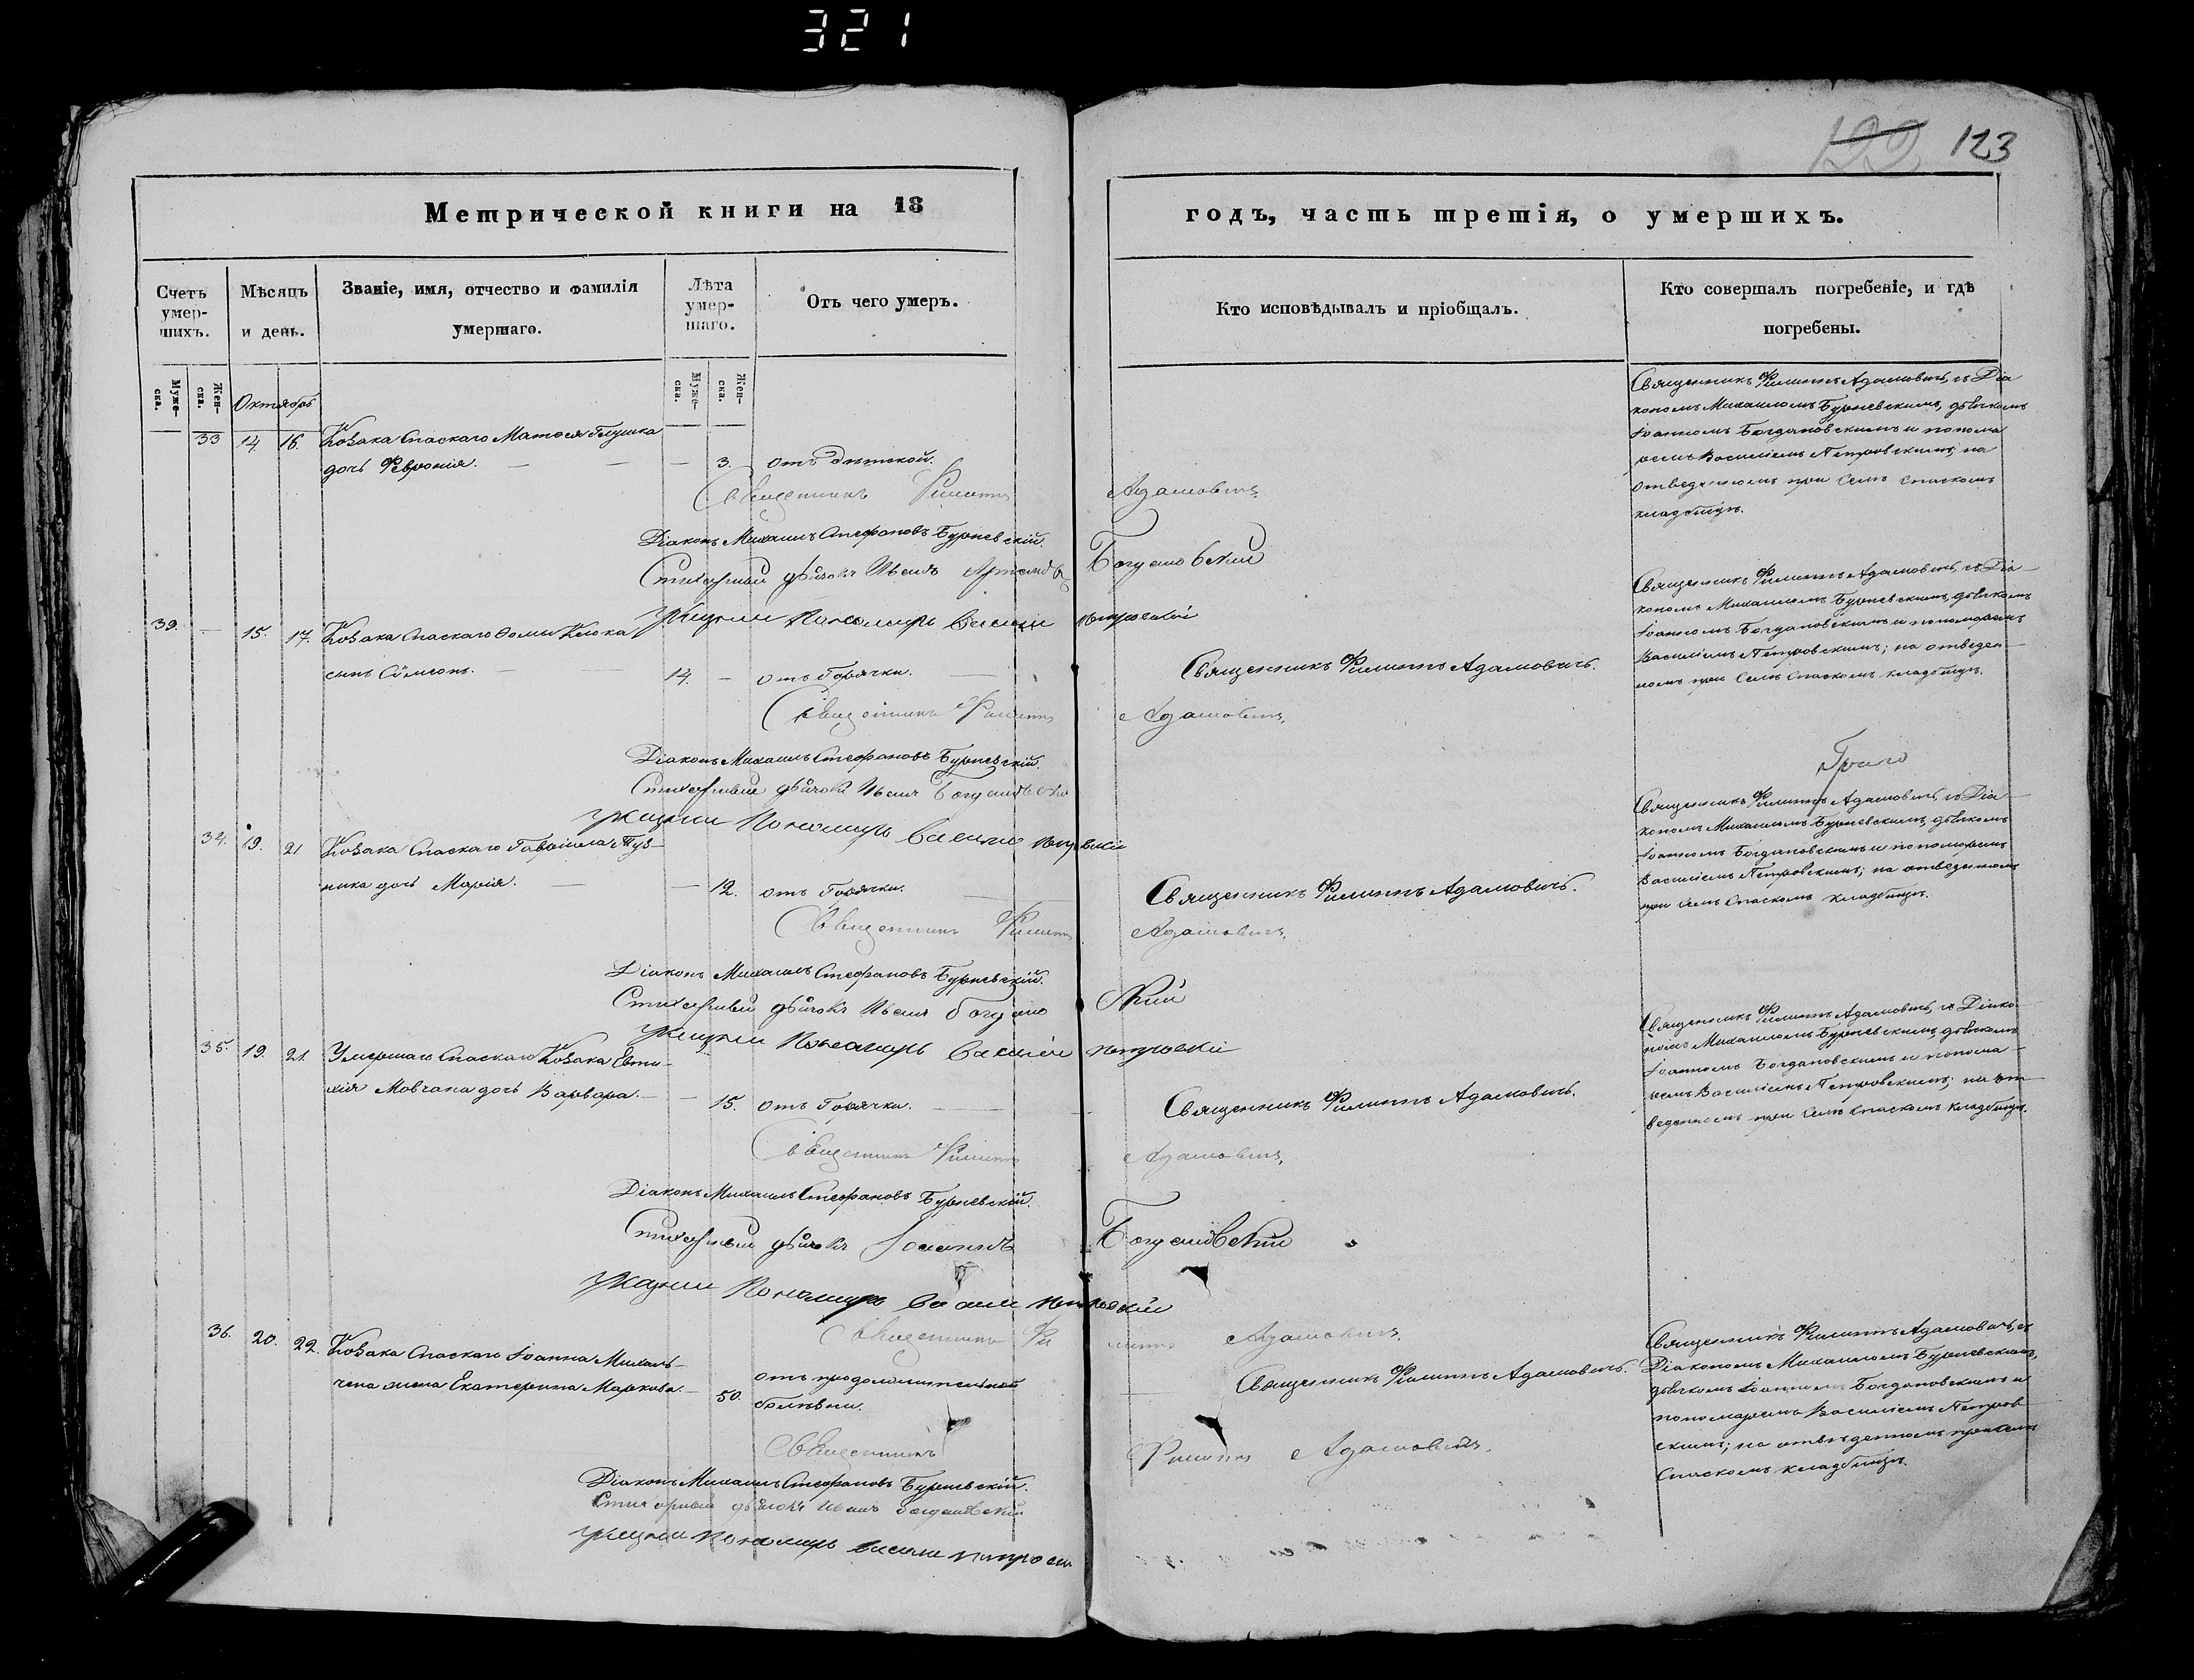 321
122 123
Метрической книги на 18
годъ, часть третія, о умершихъ.
Счетъ умер-
шихъ.
Мѣсяцъ
и день.
Званіе, имя, отчество и фамилія
умершаго.
Лѣта
умер-
шаго.
Отъ чего умеръ.
Кто исповѣдывалъ и пріобщалъ.
Кто совершалъ погребеніе, и гдѣ
погребены.
Муже-
ска.
Жен-
ска.
Октябрь
Муже-
ска.
Жен-
ска.
33 14. 16. Козака Спаскаго Матѳея Глушка
дочь Феѵронія. — — — 3. отъ дѣтской.
Священникъ Филиппъ Адамовичъ
Діаконъ Михаилъ Стефановъ Бурневскій.
Стихарный дьячокъ Иванъ Богдановскій
Указный Пономарь Василій Петровскій
Священникъ Филиппъ Адамовичъ, съ Діа
кономъ Михаиломъ Бурневскимъ, дьячкомъ
Іоанномъ Богдановскимъ и понома
ремъ Василіемъ Петровскимъ; на
отведенномъ при Селѣ Спаскомъ
кладбищѣ.
39. — 15. 17. Козака Спаскаго Ѳомы Клюка
сынъ Сѵмеонъ. — — 14. — отъ Горячки. —
Священникъ Филиппъ Адамовичъ.
Священникъ Филиппъ Адамовичъ.
Діаконъ Михаилъ Стефановъ Бурневскій.
Стихарный дьячокъ Иванъ Богдановскій
Указный Пономарь Василій Петровскій
Священникъ Филиппъ Адамовичъ, съ Діа—
кономъ Михаиломъ Бурневскимъ, дьячкомъ
Іоанномъ Богдановскимъ и пономаремъ
Василіемъ Петровскимъ; на отведен—
номъ при Селѣ Спаскомъ кладбищѣ.
34. 19. 21 Козака Спаскаго Гавріила Туз—
ника дочь Марія. — — 12. отъ Горячки.
Священникъ Филиппъ Адамовичъ.
Священникъ Филиппъ Адамовичъ.
Діаконъ Михаилъ Стефановъ Бурневскій.
Стихарный дьячокъ Иванъ Богдановскій
Указный Пономарь Василій Петровскій
Священникъ Филиппъ Адамовичъ, съ Діа—
кономъ Михаиломъ Бурневскимъ, дьячкомъ
Іоанномъ Богдановскимъ и пономаремъ
Василіемъ Петровскимъ; на отведенномъ
при Селѣ Спаскомъ кладбищѣ.
35. 19. 21. Умершаго Спаскаго Козака Евти—
хія Мовчана дочь Варвара. — — 15. отъ Горячки. —
Священникъ Филиппъ Адамовичъ.
Священникъ Филиппъ Адамовичъ.
Діаконъ Михаилъ Стефановъ Бурневскій.
Стихарный дьячокъ Іоаннъ Богдановскій
Указный Пономарь Василій Петровскій
Священникъ Филиппъ Адамовичъ, съ Діако
номъ Михаиломъ Бурневскимъ, дьячкомъ
Іоанномъ Богдановскимъ и понома—
ремъ Василіемъ Петровскимъ; на от—
веденномъ при Селѣ Спаскомъ кладбищѣ.
Священникъ Филиппъ Адамовичъ.
36. 20. 22. Козака Спаскаго Іоанна Михаль—
чена жена Екатерина Маркова. — 50. отъ продолжительной
болѣзни.
Священникъ Филиппъ Адамовичъ.
Священникъ Филиппъ Адамовичъ.
Діаконъ Михаилъ Стефановъ Бурневскій.
Стихарный дьячокъ Иванъ Богдановскій
Указный Пономарь Василій Петровскій
Священникъ Филиппъ Адамовичъ, съ
Діакономъ Михаиломъ Бурневскимъ,
дьячкомъ Іоанномъ Богдановскимъ и
пономаремъ Василіемъ Петров
скимъ; на отведенномъ при Селѣ
Спаскомъ кладбищѣ.